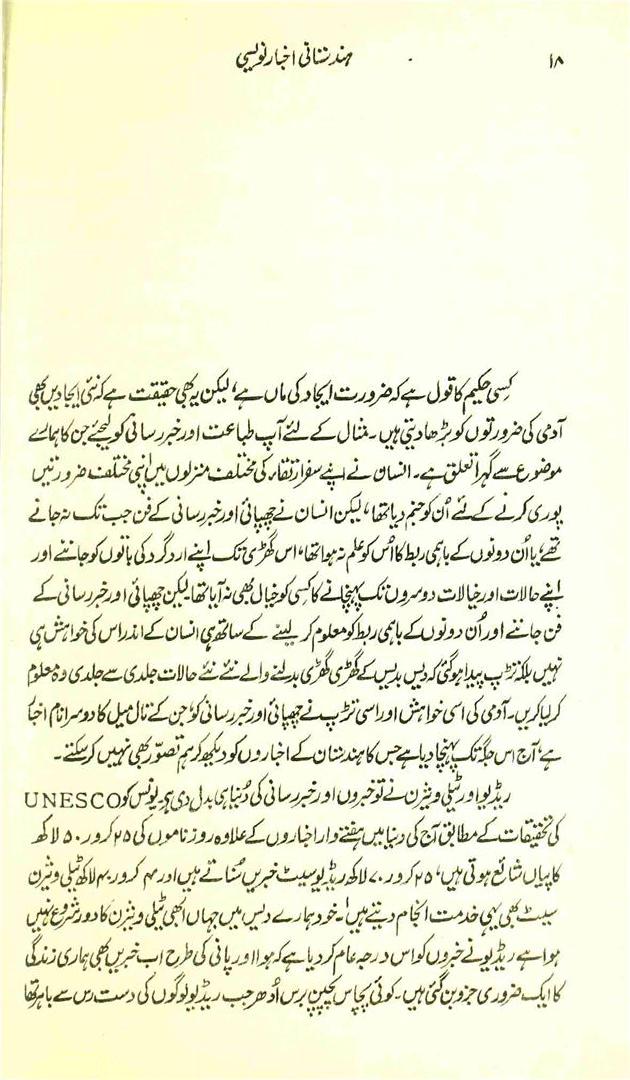 ۱۸
ہندستانی اخبار نویسی
کسی حکیم کا قول ہے کہ ضرورت ایجاد کی ماں ہے، لیکن یہ بھی حقیقت ہے کہ نئی ایجادیں بھی
آدمی کی ضرورتوں کو بڑھا دیتی ہیں۔ مثال کے لئے آپ طباعت اور خبر رسانی کو لیجئے جن کا ہمارے
موضوع سے گہرا تعلق ہے۔ انسان نے اپنے سفر ارتقاء کی مختلف منزلوں میں اپنی مختلف ضرورتیں
پوری کرنے کے لئے اُن کو جنم دیا تھا، لیکن انسان نے چھپائی اور خبر رسانی کے فن جب تک نہ جانے
تھے، یا اُن دونوں کے باہمی ربط کا اُس کو علم نہ ہوا تھا، اس گھڑی تک اپنے اردگرد کی باتوں کو جاننے اور
اپنے حالات اور خیالات دوسروں تک پہنچانے کا کسی کو خیال بھی نہ آیا تھا۔ لیکن چھپائی اور خبر رسانی کے
فن جاننے اور اُن دونوں کے باہمی ربط کو معلوم کر لینے کے ساتھ ہی انسان کے اندر اس کی خواہش ہی
نہیں بلکہ تڑپ پیدا ہو گئی کہ دیس بدیس کے گھڑی گھڑی بدلنے والے نئے نئے حالات جلدی سے جلدی وہ معلوم
کر لیا کریں۔ آدمی کی اسی خواہش اور اسی تڑپ نے چھپائی اور خبر رسانی کو، جن کے تال میل کا دوسرا نام اخبار
ہے، آج اس جگہ تک پہنچا دیا ہے جس کا ہندستان کے اخباروں کو دیکھ کر ہم تصوّر بھی نہیں کر سکتے۔
ریڈیو اور ٹیلی ویژن نے تو خبروں اور خبر رسانی کی دُنیا ہی بدل دی ہے۔ یونس کو UNESCO
کی تحقیقات کے مطابق آج کی دنیا میں ہفتے وار اخباروں کے علاوہ روزناموں کی ۲۵ کرور ۵۰ لاکھ
کاپیاں شائع ہوتی ہیں، ۲۵ کرور ۷۰ لاکھ ریڈیو سیٹ خبریں سُناتے ہیں اور ۴ کرور ۴۰ لاکھ ٹیلی ویژن
سیٹ بھی یہی خدمت انجام دیتے ہیں۔ خود ہمارے دیس میں جہاں ابھی ٹیلی ویژن کا دور شروع نہیں
ہوا ہے ریڈیو نے خبروں کو اس درجہ عام کر دیا ہے کہ ہوا اور پانی کی طرح اب خبریں بھی ہماری زندگی
کا ایک ضروری جزو بن گئی ہیں۔ کوئی پچاس پچپن برس اُدھر جب ریڈیو لوگوں کی دست رس سے باہر تھا